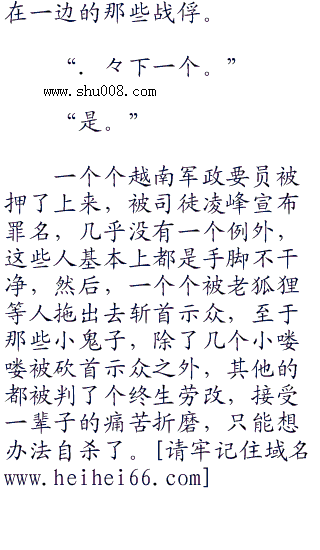 在一边的那些战俘。
“．々下一个。”
www.shu008.com
“是。”
一个个越南军政要员被
押了上来，被司徒凌峰宣布
罪名，几乎没有一个例外，
这些人基本上都是手脚不干
净，然后，一个个被老狐狸
等人拖出去斩首示众，至于
那些小鬼子，除了几个小喽
喽被砍首示众之外，其他的
都被判了个终生劳改，接受
一辈子的痛苦折磨，只能想
办法自杀了。[请牢记住域名
www.heihei66.com]